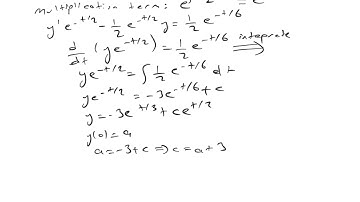 Multiplication term: e
y' e^{-t/2} - \frac{1}{2} e^{-t/2} y = \frac{1}{2} e^{-t/6}
\frac{d}{dt} (y e^{-t/2}) = \frac{1}{2} e^{-t/6} integrate ⟹
y e^{-t/2} = ∫ \frac{1}{2} e^{-t/6} dt
y e^{-t/2} = -3e^{-t/6} + c
y = -3e^{t/3} + ce^{t/2}
y(0) = a
a = -3 + c ⟹ c = a + 3